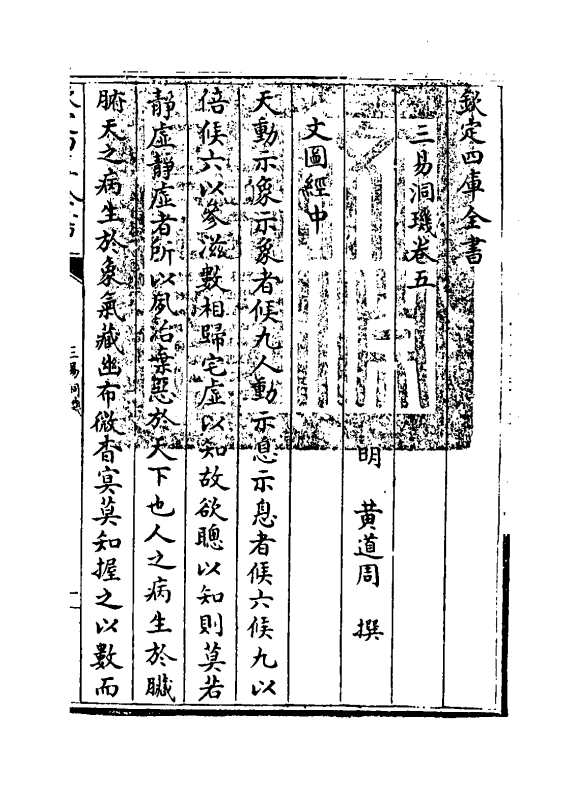 欽定四庫全書
三易洞璣卷五
明 黃道周 撰
文圖經中
天動示象示象者候九人動示息示息者候六候九以
倍候六以參滋數相歸宅虛以知故欲聰以知則莫若
靜虛靜虛者所以夙治棄惡於天下也人之病生於臟
腑天之病生於象氣藏幽布微杳冥莫知握之以數而
三易洞璣